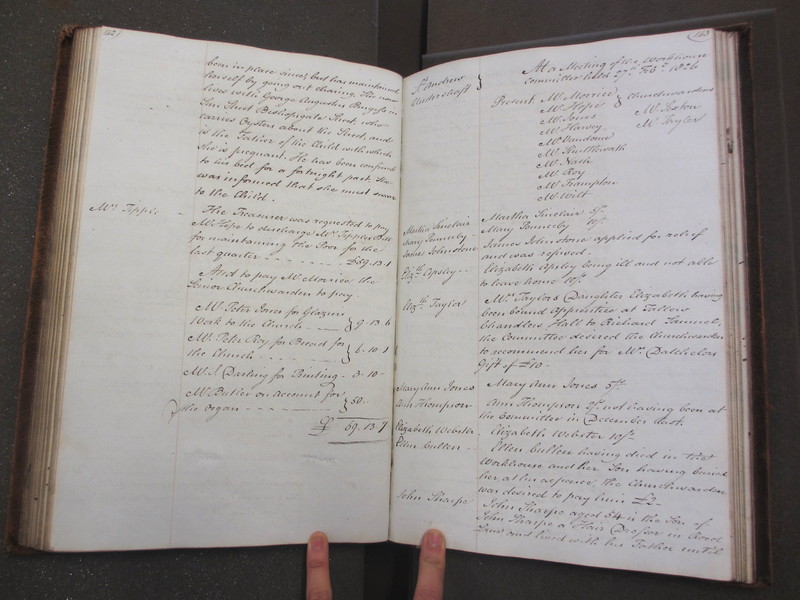 142
been in place since, but has maintained
herself by going out charing. She now
lives with George Augustus Burgess in
Sun Street Bishopsgate Street, who
carries Oysters about the Street, and
is the Father of the Child with which
she is pregnant. He has been confined
to his bed for a fortnight past. She
was informed that she must swear
to the Child.
Mr. Tipple
The Treasurer was requested to pay
Mr. Hope to discharge Mr. Tipples Bill
for maintaining the Poor for the
last quarter - - - - £59.13.1
And to pay Mr. Morrice the
Senior Churchwarden to pay.
Mr. Peter Jones for Glaziers
Work to the Church - - } 9.13.6
Mr. Peter Roy for Bread for
the Church - - - } 6.10.1
Mr. J. Darling for Printing - 3.10-
Mr. Butler on account for
the Organ - - - - } 50--
£ 69.13.7
143
St. Andrew
Undershaft }
At a Meeting of the Workhouse
Committee held 27th. Feby. 1826
Present Mr. Morrice
Mr. Hope } Churchwardens
Mr. Jones Mr. Sexton
Mr. Harvey Mr. Taylor
Mr. Vandome
Mr. Kuttlewath
Mr. Nash
Mr. Roy
Mr. Frampton
Mr. Wilt
Martha Sinclair
Martha Sinclair 5/-
Mary Punneby
Mary Punneby 10/-
James Johnstone
James Johnstone applied for relief
and was refused.
Elizth. Apsley
Elizabeth Apsley being ill and not able
to leave home 10/-
Elizth. Taylor
Mrs. Taylors Daughter Elizabeth having
been bound Apprentice at Fellows
Chandlers Hall to Richard
the Committee desired the Churchwarden
to recommend her for Mr. Datchelors
Gift of £10-
Mary Ann Jones
Mary Ann Jones 5/-
Ann Thompson
Ann Thompson 2/- not having been at
the Committee in December last.
Elizabeth Webster
Elizabeth Webster 10/-
Ellen Cullen
Ellen Cullen having died in the
Workhouse and her Son having buried
her at his expence, the Churchwarden
was desired to pay him £2-
John Sharpe
John Sharpe aged 54 is the Son of
John Sharpe a Hair Dresser in Rood
Lane and lived with his Father until